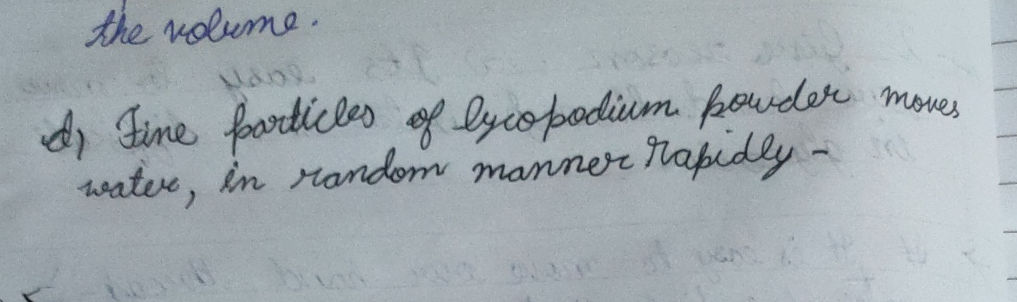 the volume.
d) Fine particles of lycopodium powder moves
water, in random manner rapidly -